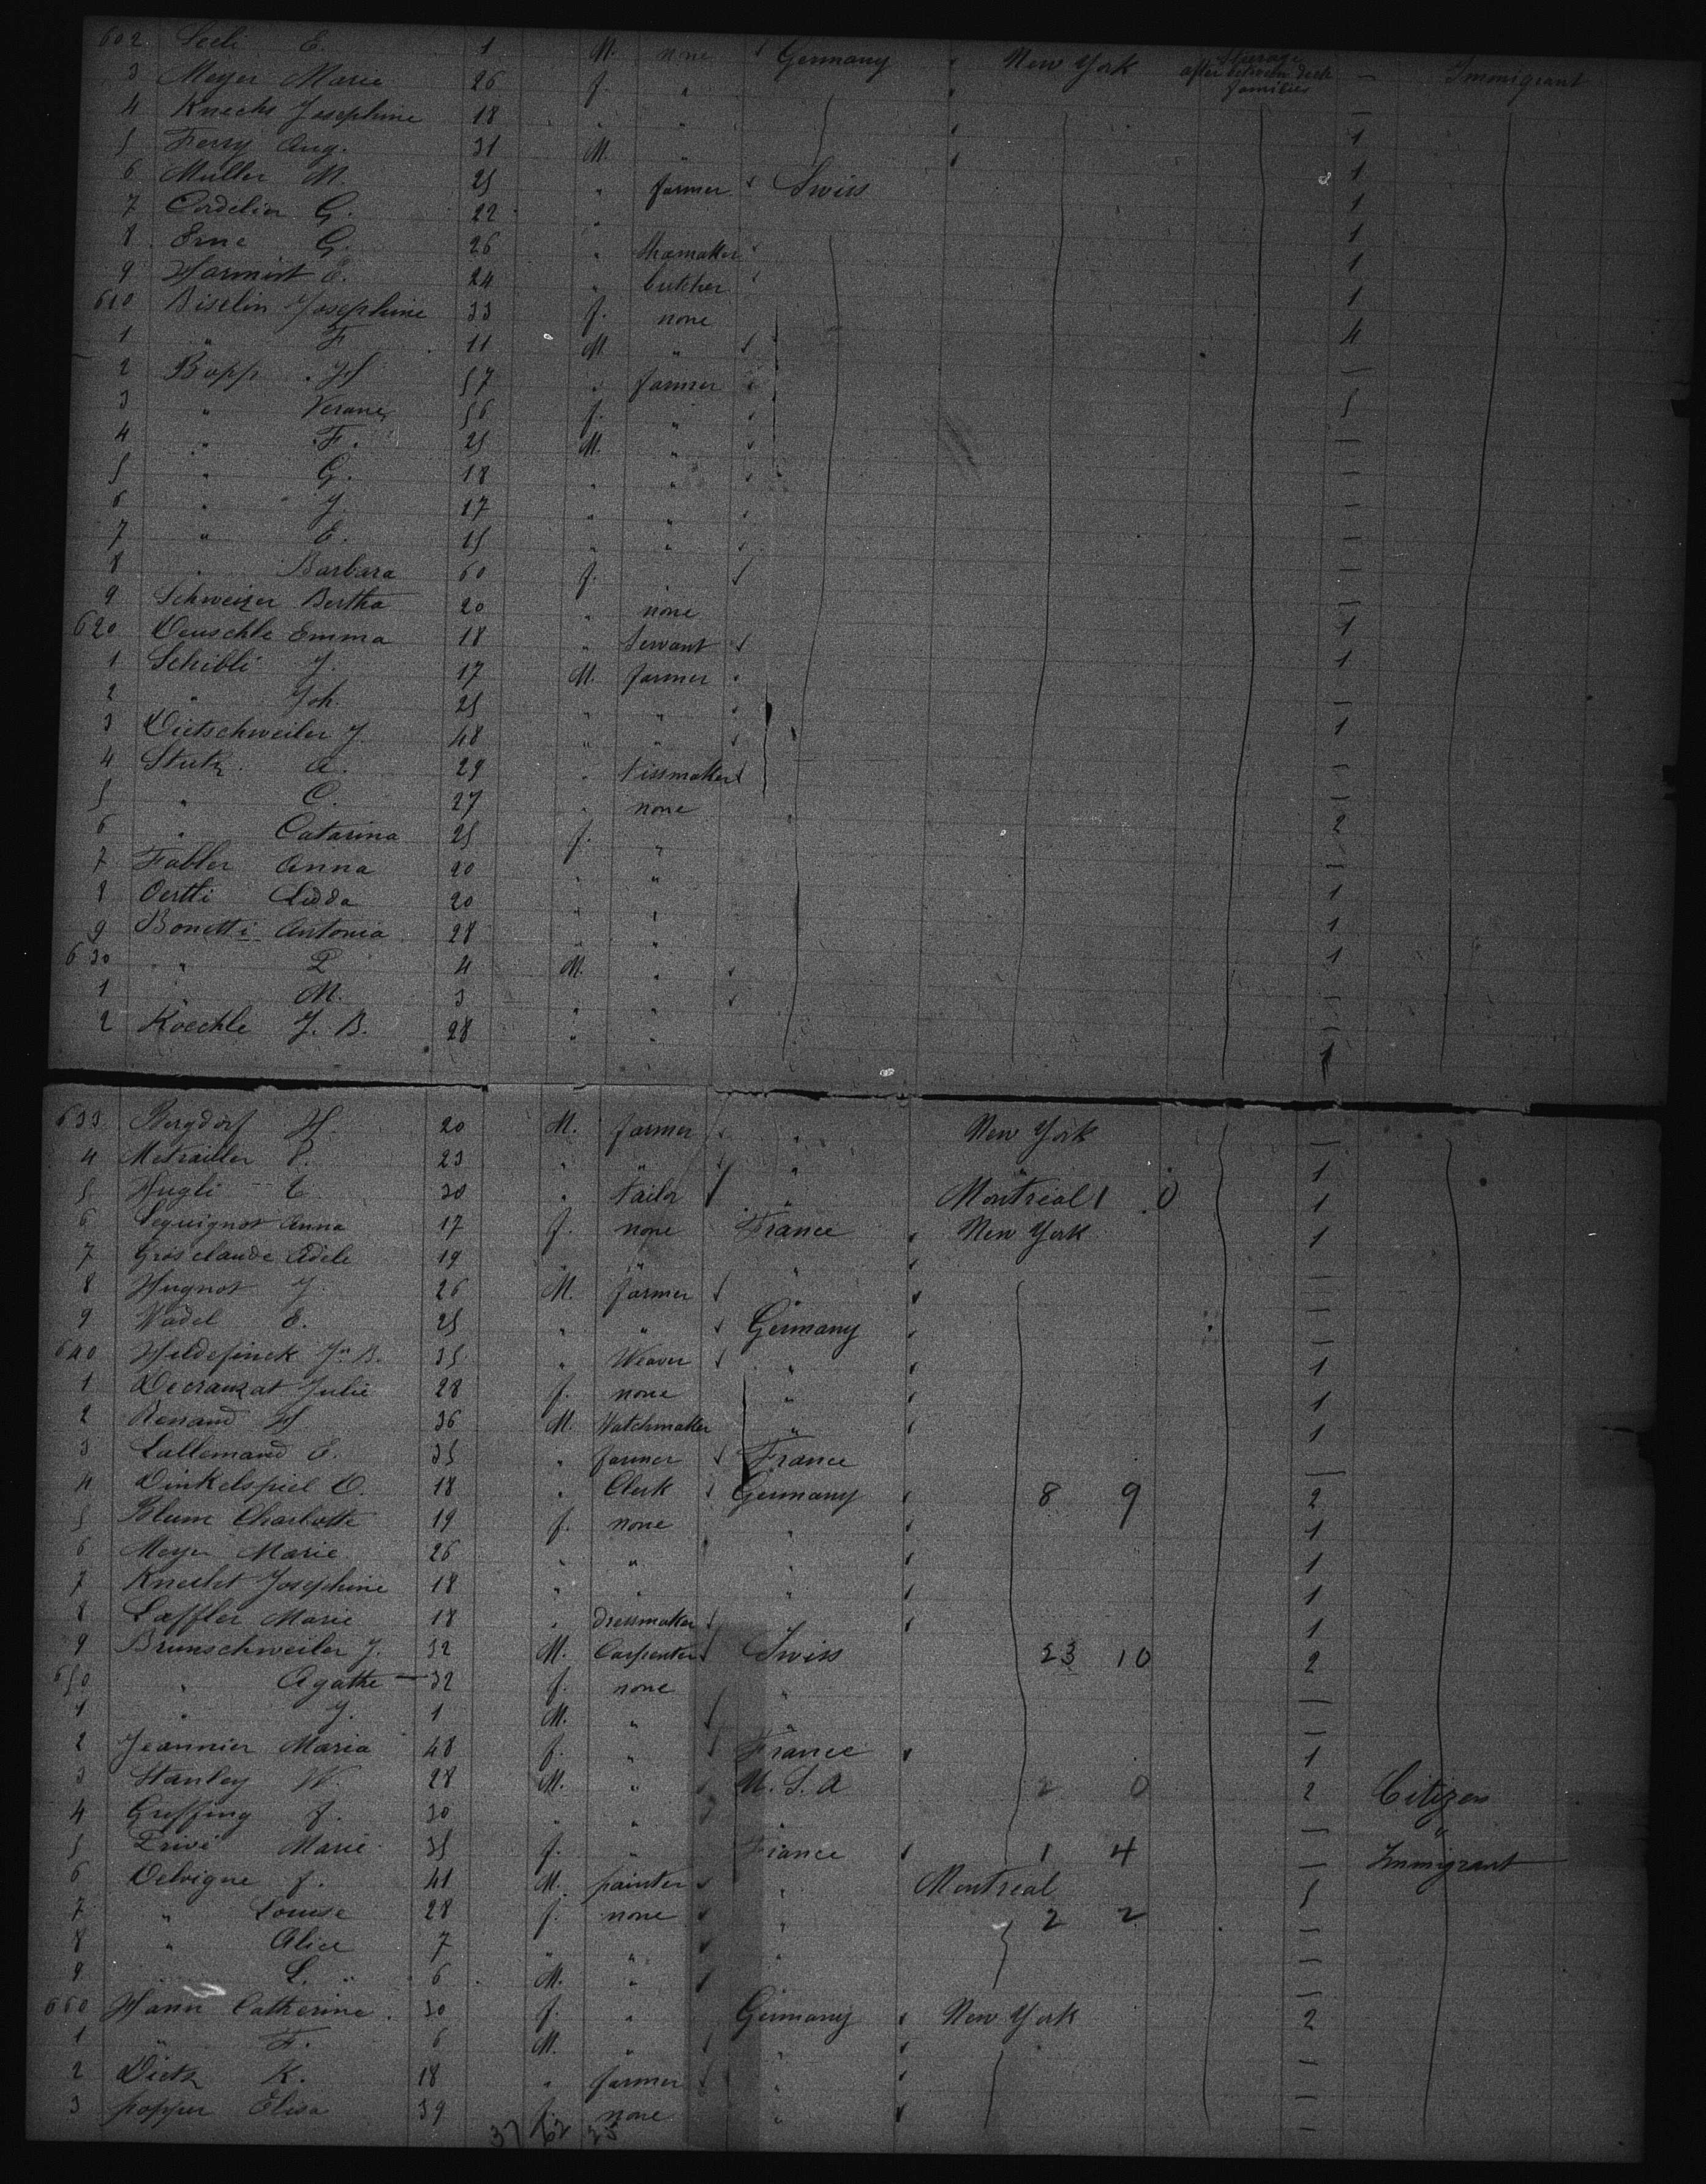 602 Seeli E. 1 M. none Germany New York Steerage after between deck families — Immigrant
3 Meyer Marie 26 f. " —
4 Knecht Josephine 18 " " 1
5 Ferry Aug. 31 M. " 1
6 Muller M. 25 " farmer Swiss 1
7 Cordelier G. 22 " 1
8 Erne G. 26 " Shoemaker 1
9 E. 24 " butcher 1
610 Biselin Josephine 33 f. none 4
1 " F 11 M. " —
2 Bopp H 57 " farmer 5
3 " 56 f. " —
4 " F. 25 M. " —
5 " G. 18 " " —
6 " J. 17 " " —
7 " E. 15 " " —
8 " Barbara 60 f. —
9 Schweizer Bertha 20 " none 1
620 Deuschle Emma 18 " Servant 1
1 Schibli J. 17 M. farmer —
2 " Joh. 25 " " 1
3 Dietschweiler J. 48 " " —
4 Stutz A. 29 " —
5 " C. 27 " none 2
6 " Catarina 25 f. " —
7 Fabler Anna 20 " " 1
8 Oertli Lidda 20 " " 1
9 Bonetti Antonia 28 " " 1
630 " P 4 M. " —
1 " M. 3 " " —
2 Koechle J. B. 28 " " 1
633 Bergdorf H. 20 M. farmer " New York —
4 Metrailler P. 23 " " " " 1
5 Hugli E. 30 " Tailor " Montreal 1 0 1
6 Lequignot Anna 17 f. none France New York 1
7 Grosclaude Adele 19 " " " —
8 Hugnot J. 26 M. farmer " —
9 Wadel E. 25 " " Germany —
640 Hildefinck Jn B. 35 " Weaver " 1
1 Decrauzat Julie 28 f. none " 1
2 Renand H 36 M. Watchmaker " 1
3 Lallemand E. 35 " farmer France —
4 Dinkelspiel O. 18 " Clerk Germany 8 9 2
5 Blum Charlotte 19 f. none " 1
6 Meyer Marie 26 " " " 1
7 Knecht Josephine 18 " " " 1
8 Loeffler Marie 18 " Dressmaker 1
9 Brunschweiler J. 32 M. Carpenter Swiss 23 10 2
650 " Agathe — 32 f. none " —
1 " J. 1 M. " " —
2 Jeannier Maria 48 f. " France 1
3 Stanley W. 28 M. " U. S. A 2 0 2 Citizen
4 Greffing J. 30 " " " — "
5 Marie 35 f. " France 1 4 — Immigrant
6 Delvigne J. 41 M. painter " Montreal 5
7 " Louise 28 f. none " 2 2 —
8 " Alice 7 " " " —
9 " L. 6 M. " —
660 Hann Catherine 30 f. " Germany New York 2
1 " F. 6 M. " " —
2 Dietz K. 18 " farmer " —
3 popper Elisa 39 f. none " —
37 62 25